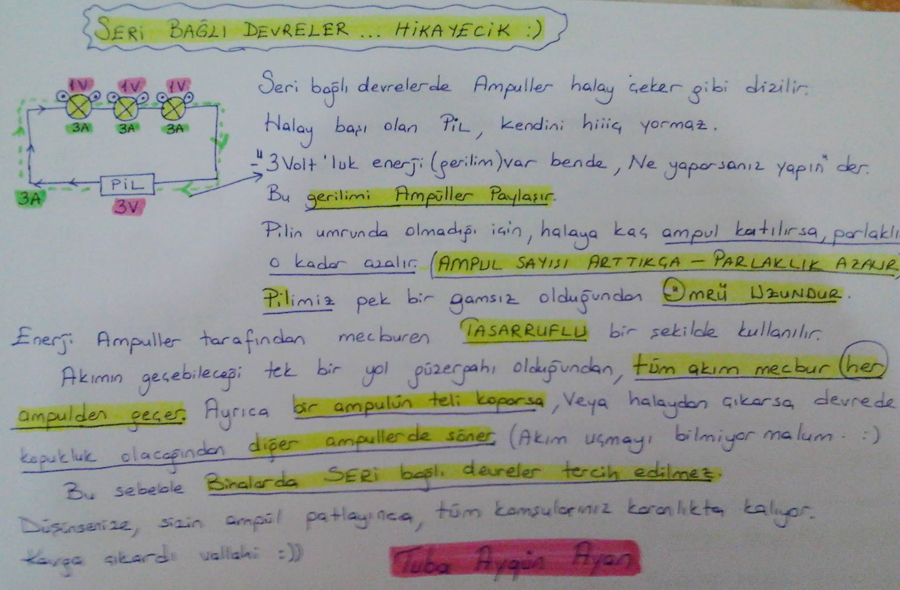 SERİ BAĞLI DEVRELER ... HİKAYECİK :)
1V 1V 1V
3A 3A 3A
PİL
3A
3V
Seri bağlı devrelerde Ampuller halay çeker gibi dizilir.
Halay başı olan PİL, kendini hiiiç yormaz.
- "3Volt'luk enerji (gerilim) var bende, Ne yaparsanız yapın" der.
Bu gerilimi Ampüller Paylaşır.
Pilin umrunda olmadığı için, halaya kaç ampul katılırsa, parlaklı
o kadar azalır. (AMPUL SAYISI ARTTIKÇA - PARLAKLIK AZALIR)
Pilimiz pek bir gamsız olduğundan ÖMRÜ UZUNDUR.
Enerji Ampuller tarafından mecburen TASARRUFLU bir şekilde kullanılır.
Akımın geçebileceği tek bir yol güzergahı olduğundan, tüm akım mecbur her
ampulden geçer. Ayrıca bir ampulün teli koparsa, Veya halaydan çıkarsa devrede
kopukluk olacağından diğer ampullerde söner (Akım uçmayı bilmiyor malum. :)
Bu sebeble Binalarda SERİ bağlı devreler tercih edilmez.
Düşünsenize, sizin ampül patlayınca, tüm komşularınız karanlıkta kalıyor.
Kavga çıkardı vallahi :))
Tuba Aygün Ayan